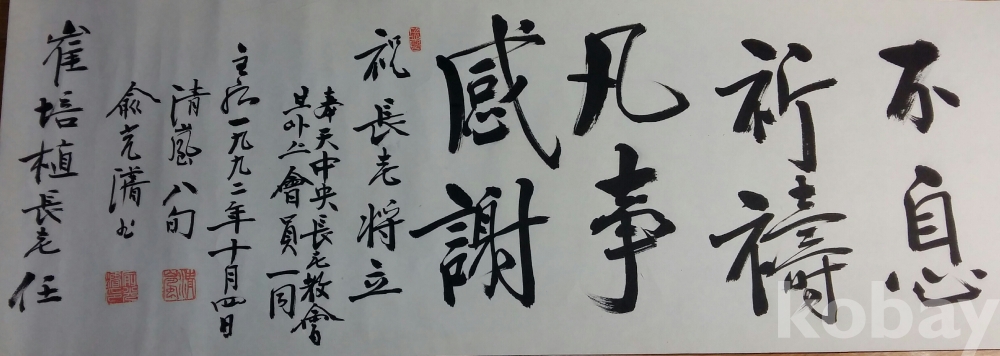 不息
祈禱
凡事
感謝
祝長老將立
奉天中央長老教會
모아스會員一同
主后一九九二年十月四日
清嵐八旬
兪克濬書
崔培植長老任
kobay